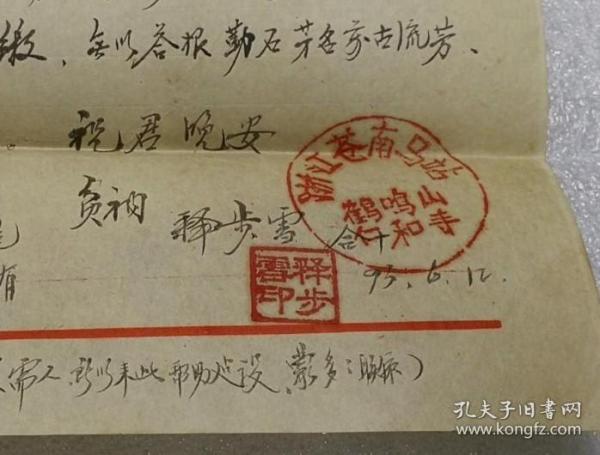 缴，无以答报勤石芳名万古流芳、
祝君晚安
贫衲
释步雪 合十
95.6.12.
浙江苍南马站
鹤鸣山
仁和寺
释步雪印
有
需人所以来此帮助建设
孔夫子旧书网
www.kongfz.com